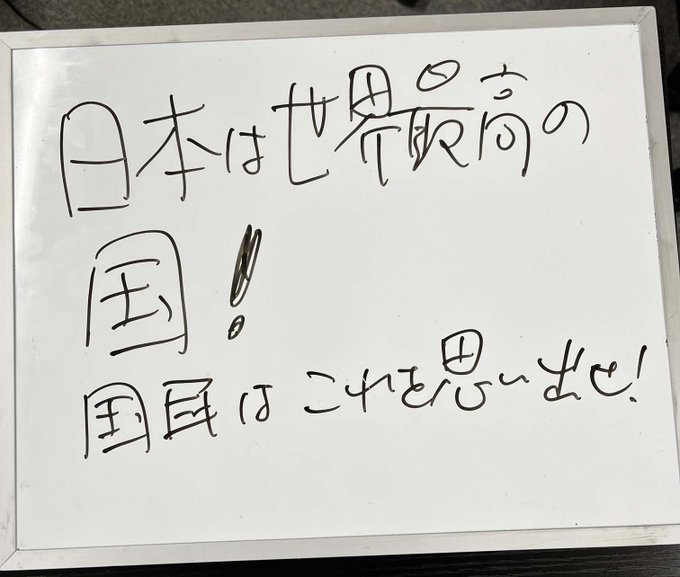 日本は世界最高の
国！
国民はこれを思い出せ！